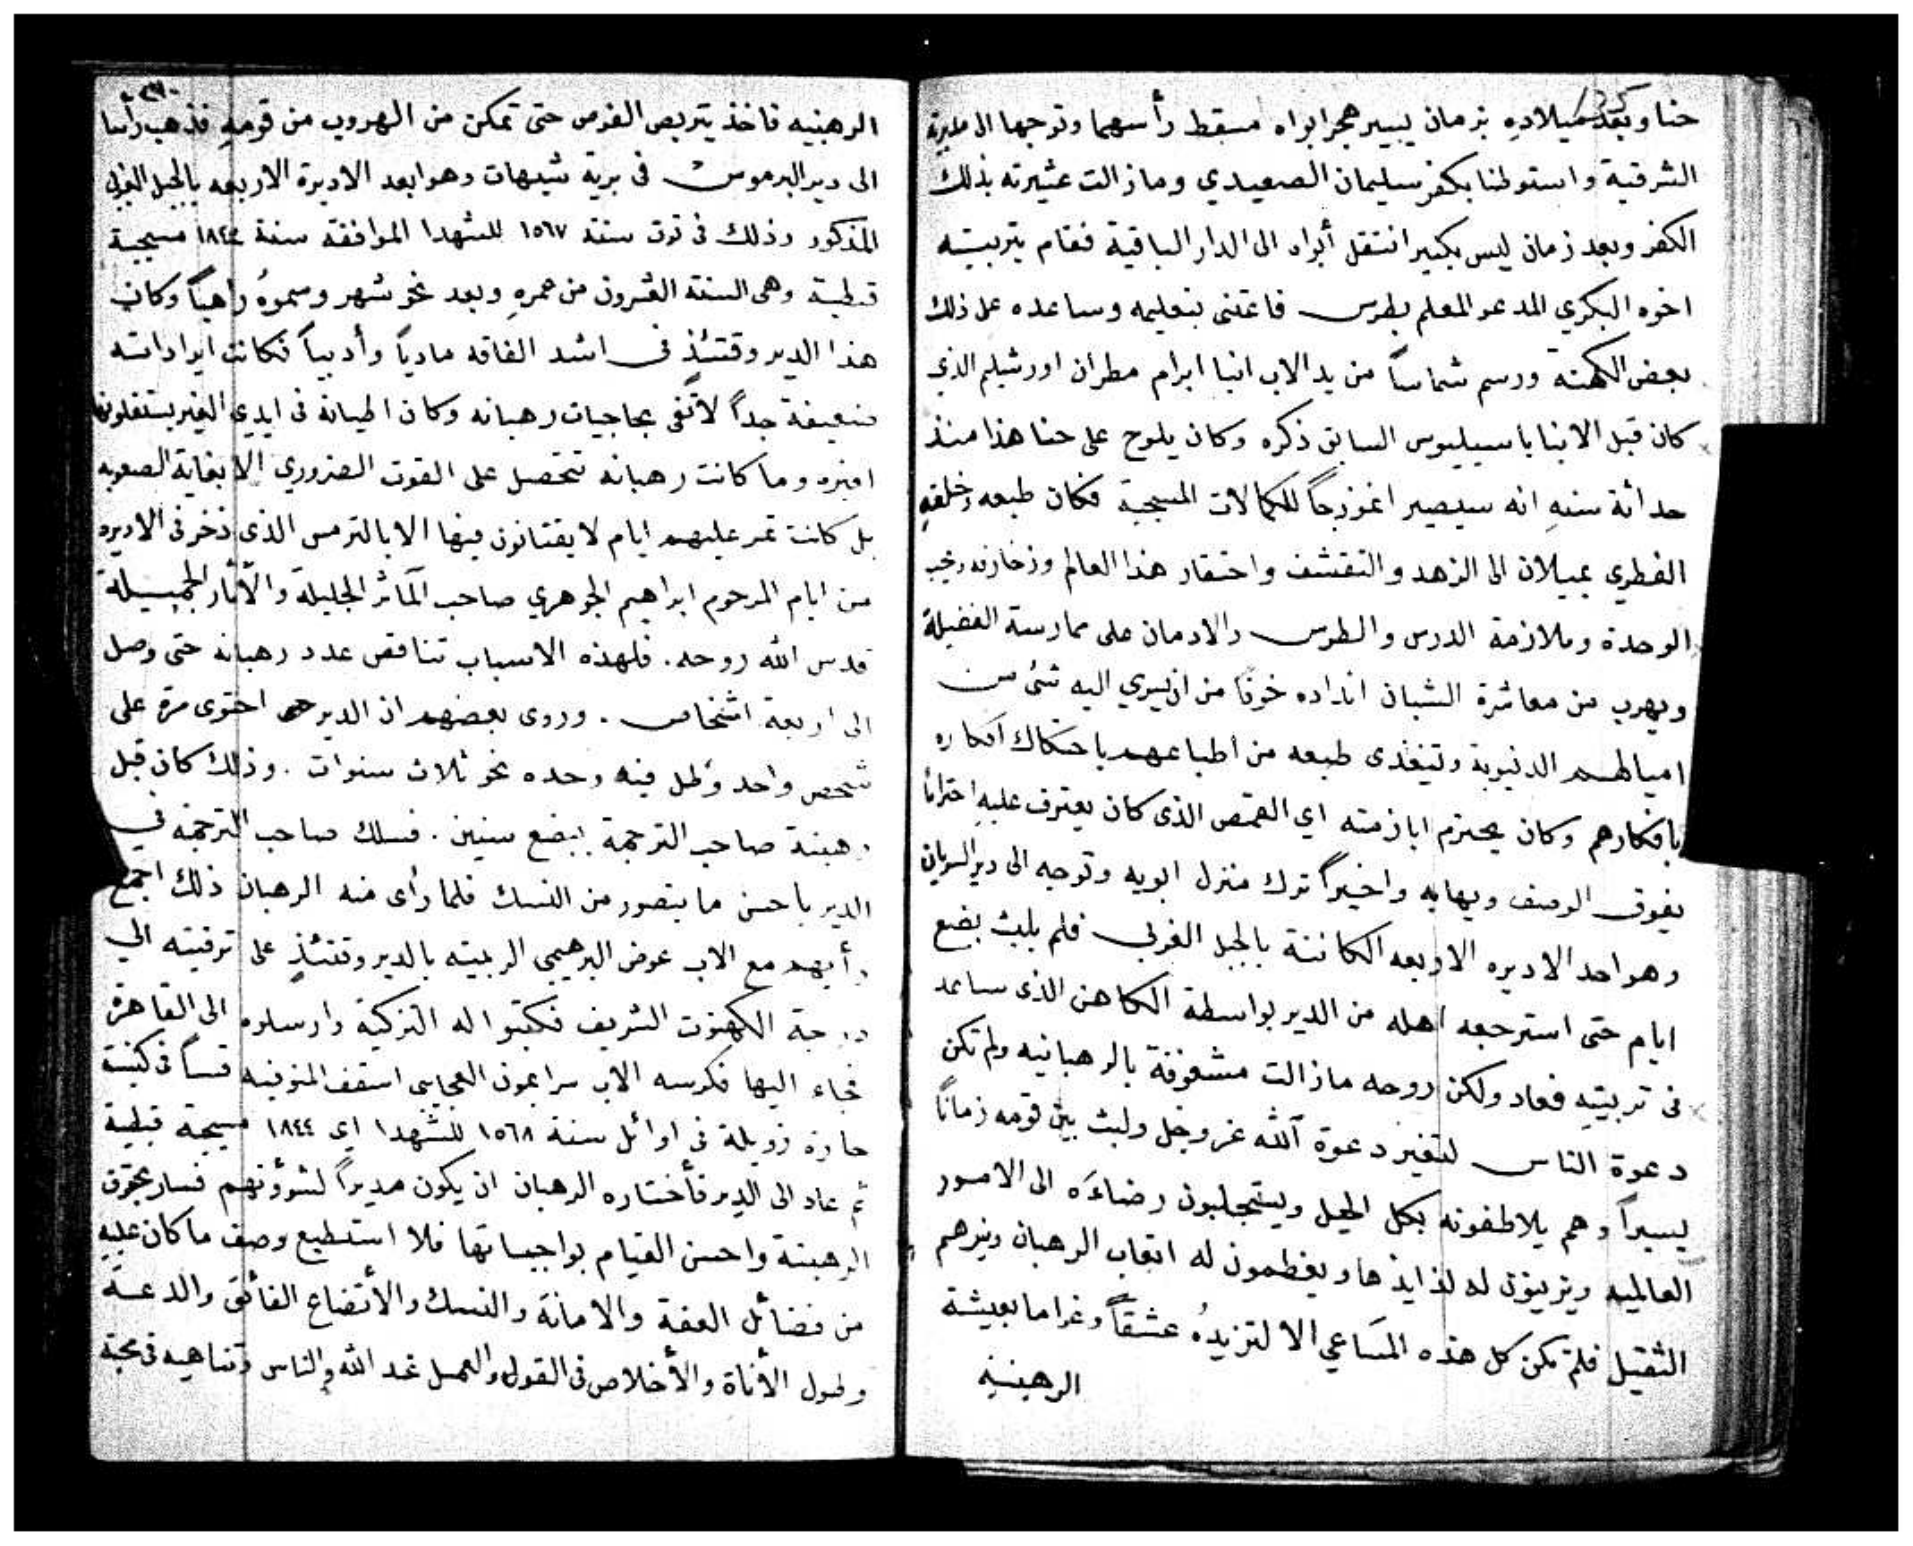 حنا وبعد ميلاده بزمان يسير هجر ابواه مسقط رأسهما وتوجها الى مديرية
الشرقية واستوطنا بكفر سليمان الصعيدي وما زالت عشيرته بذلك
الكفر وبعد زمان ليس بكبير انتقل أبواه الى الدار الباقية فقام بتربيته
اخوه البكري المدعو المعلم بطرس فاعتنى بتعليمه وساعده على ذلك
بعض الكهنة ورسم شماساً من يد الاب انبا ابرام مطران اورشليم الذي
كان قبل الانبا باسيليوس السابق ذكره وكان يلوح على حنا هذا منذ
حداثة سنهِ انه سيصير انموزجاً للكمالات المسيحية فكان طبعه وخلقه
الفطري يميلان الى الزهد والتقشف واحتقار هذا العالم وزخارفه
الوحدة وملازمة الدرس والطرس والادمان على ممارسة الفضيلة
ويهرب من معاشرة الشبان انداده خوفاً من ان يسري اليه شئ من
اميالهم الدنيوية ويتغذى طبعه من اطباعهم باحتكاك أفكاره
بافكارهم وكان يحترم ابا زمته اي القمص الذى كان يعترف عليه احتراماً
يفوق الوصف ويهابه واخيراً ترك منزل ابويه وتوجه الى دير السريان
وهو احد الاديره الاربعه الكائنة بالجبل الغربي فلم يلبث بضع
ايام حتى استرجعه اهله من الدير بواسطة الكاهن الذى ساعد
فى تربيتهِ فعاد ولكن روحه مازالت مشغوفة بالرهبانيه ولم تكن
دعوة الناس لتغير دعوة الله عز وجل ولبث بين قومه زماناً
يسيراً وهم يلاطفونه بكل الحيل ويستجلبون رضاءَه الى الامور
العالميه ويزينون له لذايذها ويعظمون له اتعاب الرهبان ونيرهم
الثقيل فلم تكن كل هذه المساعي الا لتزيدهُ عشقاً وغراما بعيشة
الرهبنيه
الرهبنيه فاخذ يتربص الفرص حتى تمكن من الهروب من قومهِ فذهب رأسا
الى دير البرموس فى برية شيهات وهو ابعد الاديرة الاربعه بالجبل الغربي
المذكور وذلك فى توت سنة ١٥٦٧ للشهدا الموافقة سنة ١٨٤٤ مسيحية
قبطية وهى السنة العشرون من عمرهِ وبعد نحو شهر وسموهُ راهباً وكان
هذا الدير وقتئذٍ فى اشد الفاقه مادياً وأدبياً فكانت ايراداته
ضعيفة جداً لا تفى بحاجيات رهبانه وكان اطيانه فى ايدي الغير يستغلونها
وما كانت رهبانه تتحصل على القوت الضروري الا بغاية الصعوبه
بل كانت تمر عليهم ايام لا يقتاتون فيها الا بالترمس الذى ذخر فى الاديره
من ايام المرحوم ابراهيم الجوهري صاحب المآثر الجليلة والآثار الجميلة
قدس الله روحه. فلهذه الاسباب تناقص عدد رهبانه حتى وصل
الى اربعة اشخاص. وروى بعضهم ان الدير احتوى مرة على
شخص واحد وظل فيه وحده نحو ثلاث سنوات. وذلك كان قبل
رهبنة صاحب الترجمة ببضع سنين. فسلك صاحب الترجمة في
الدير باحسن ما يتصور من النسك فلما رأى منه الرهبان ذلك اجمع
رأيهم مع الاب عوض البرهيمي الربيته بالدير وقتئذٍ على ترقيته الى
درجة الكهنوت الشريف فكتبوا له التزكية وارسلوه الى القاهرة
فجاء اليها فكرسه الاب سرابمون العجايبى اسقف المنوفيه قساً فى كنيسة
حارة زويلة فى اوائل سنة ١٥٦٨ للشهدا اى ١٨٤٤ مسيحية قبطية
ثم عاد الى الدير فأختاره الرهبان ان يكون مديراً لشؤونهم فسار بحقوق
الرهبنة واحسن القيام بواجباتها فلا استطيع وصف ما كان عليهِ
من فضائل العفة والامانة والنسك والأتضاع الفائق والدعة
وطول الأناة والأخلاص فى القول والعمل عند الله والناس وتناهيه فى محبة